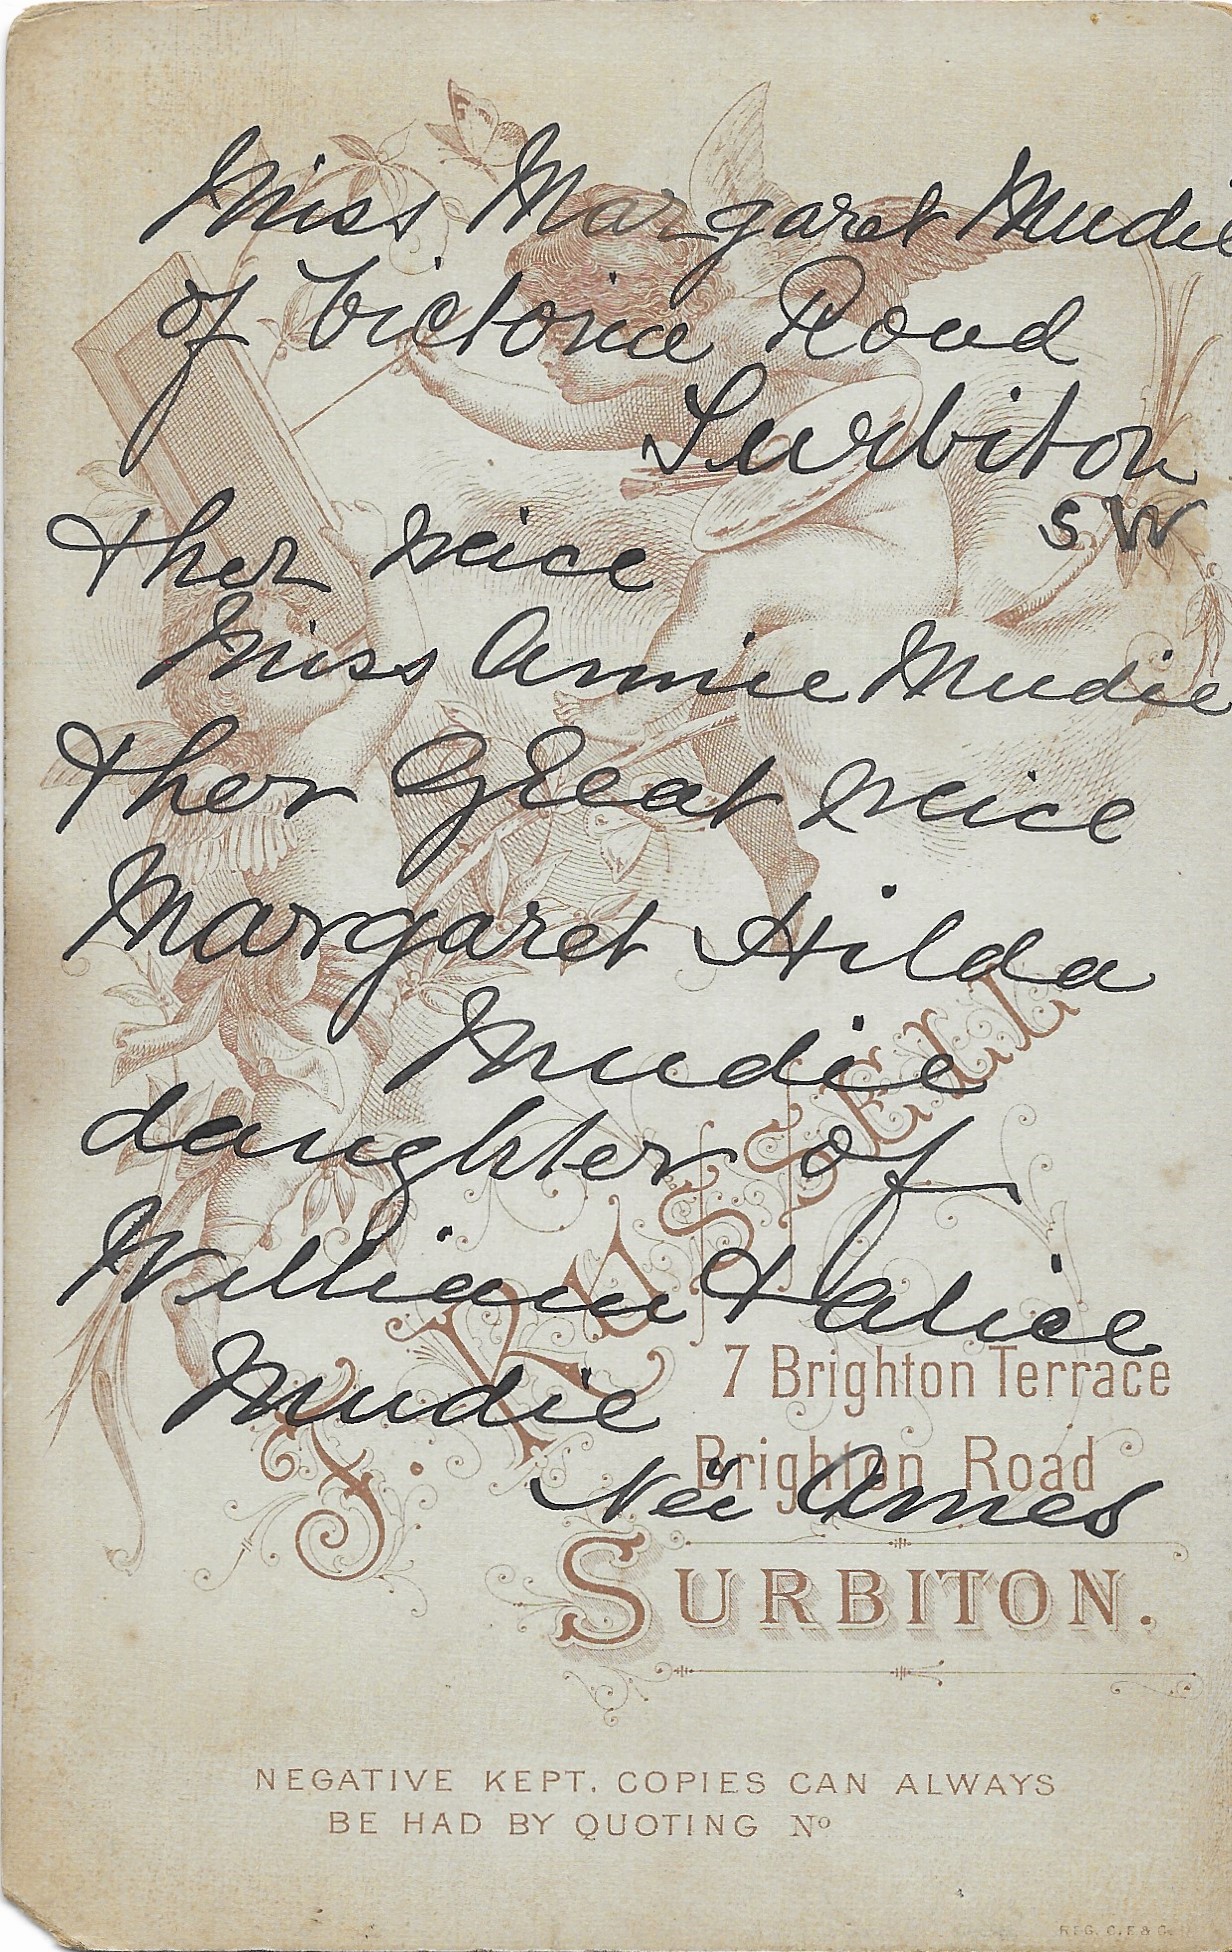 Miss Margaret Mudie
of Victoria Road
Surbiton
SW
& her neice
Miss Annie Mudie
& her Great neice
Margaret Hilda
Mudie
daughter of
William & Alice
Mudie
Neé Ames
J. RUSSELL
7 Brighton Terrace
Brighton Road
SURBITON.
NEGATIVE KEPT. COPIES CAN ALWAYS
BE HAD BY QUOTING No
REG. C. F & G.